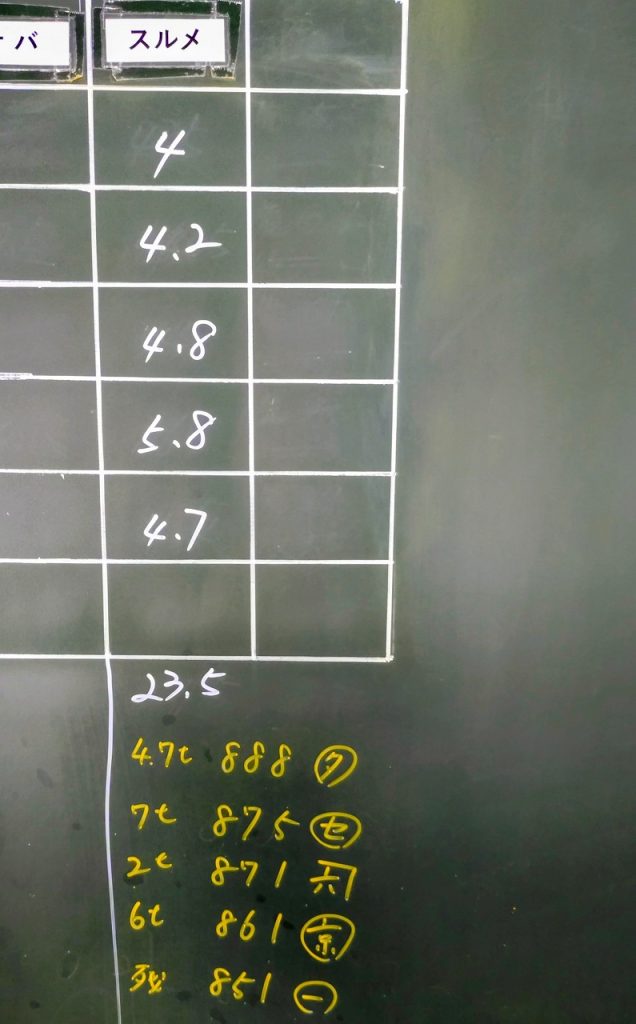 バ スルメ
4
4.2
4.8
5.8
4.7
23.5
4.7t 888 ク
7t 875 セ
2t 871
6t 861 京
残 851 一